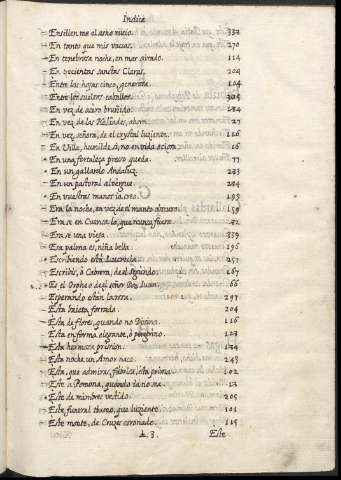 Indice
Ensillen me el asno rucio. 332
En tanto que mis vacas. 270
En tenebrosa noche, en mar airado. 114
En trecientas sanctas Claras. 204
Entre las hojas cinco, generosa. 104
Entre los sueltos caballos.
En vez de acero bruñido. 284
En vez de las Helíades, ahora 27
En vez, señora, de el crystal luciente. 116
En Villa, humilde sí, no en vida ociosa. 16
En una fortaleça preso queda. 77
En un gallardo Andaluz 233
En un pastoral albergue 284
En vuestras manos ia creo. 195
Era la noche, en vez de el manto obscuro. 159
Era se en Cuenca lo que nunca fuera 82
Era se una vieja. 339
Esa palma es, niña bella 196
Escribiendo está Lucrecia 257
Escribis, ò Cabrera, de el segundo. 167
Es el Orpheo de el señor Don Juan. 66
Esperando están la rosa. 297
Esta baieta forrada. 204
Esta de flores, quando no Divina. 116
Esta en forma elegante, ò peregrino. 123
Esta hermosa prision. 174
Esta noche un Amor nace. 243
Esta, que admiras, fabrica, esta prima. 102
Este a Pomona, quando ia no sea. 12
Este de mimbres vestido. 205
Este, funeral throno, que luziente. 101
Este monte, de Cruzes coronado. 115
3. Este